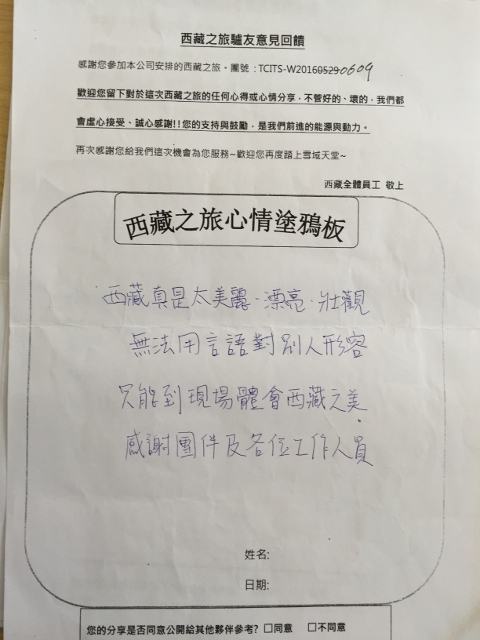 西藏之旅驢友意見回饋
感謝您參加本公司安排的西藏之旅。團號：TCITS-W201605290609
歡迎您留下對於這次西藏之旅的任何心得或心情分享，不管好的、壞的，我們都
會虛心接受、誠心感謝!!您的支持與鼓勵，是我們前進的能源與動力。
再次感謝您給我們這次機會為您服務~歡迎您再度踏上雪域天堂~
西藏全體員工 敬上
西藏之旅心情塗鴉板
西藏真是太美麗、漂亮、壯觀
無法用言語對別人形容
只能到現場體會西藏之美.
感謝團伴及各位工作人員
姓名:
日期:
您的分享是否同意公開給其他夥伴參考? □同意 □不同意